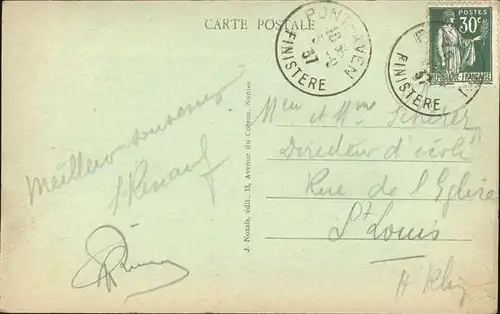 CARTE POSTALE
PONT-AVEN
18
37
FINISTERE
POSTES
30c
REPUBLIQUE FRANÇAISE
37
FINISTERE
Meilleur souvenir
J. Nozais, édit., 13, Avenue du Coteau, Nantes
et Mme
Directeur d'école
Rue de l'Eglise
St Louis
Ht Rhin